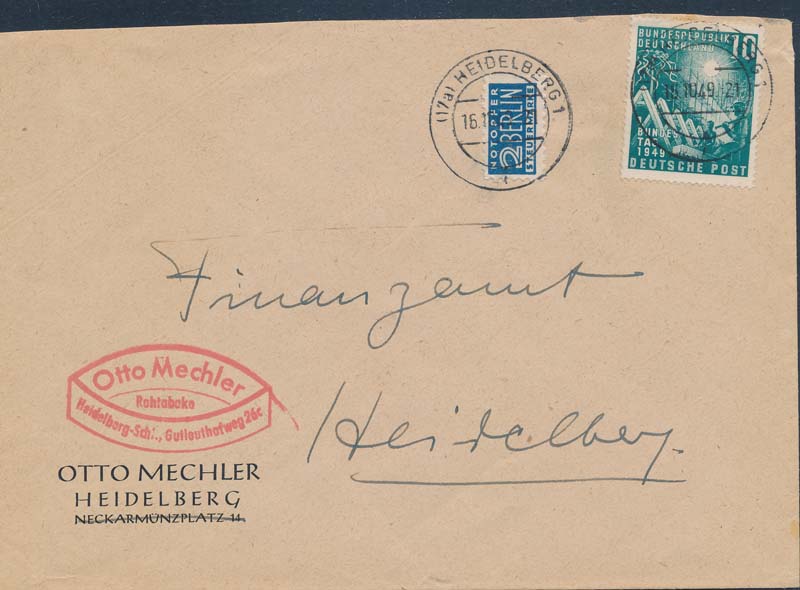 (17a) HEIDELBERG 1
16.1
NOTOPFER
2 BERLIN
STEUERMARKE
BUNDESREPUBLIK
DEUTSCHLAND
10
16.10.49.-21
BUNDES
TAG
1949
DEUTSCHE POST
Finanzamt
Heidelberg.
Otto Mechler
Rohtabake
Heidelberg-Schl., Gutleuthofweg 26c
OTTO MECHLER
HEIDELBERG
NECKARMÜNZPLATZ 14